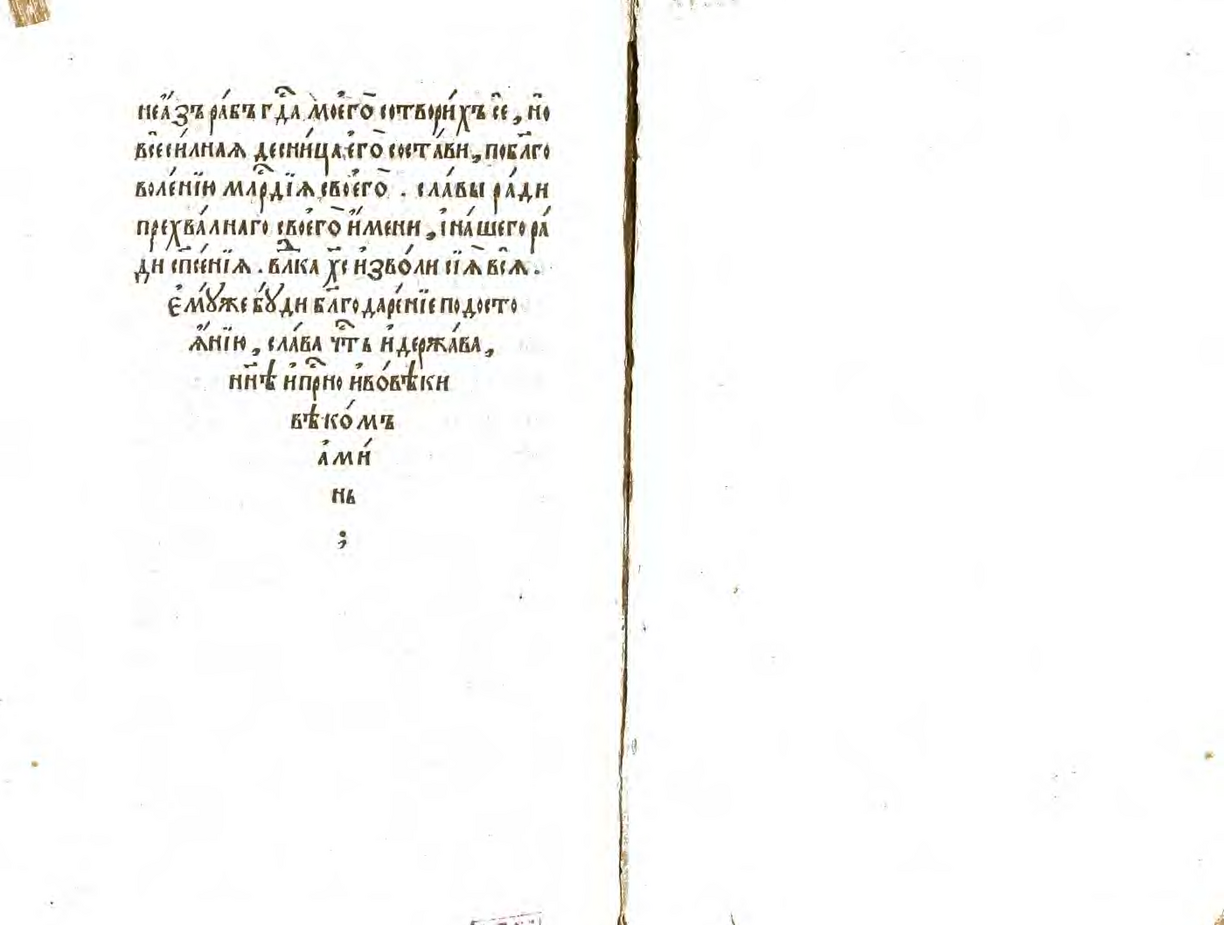 неа҆́зъ ра́бъ гдⷭ҇а мᲂегѡ̀ сᲂтвᲂри́хъ сѐ, нᲂ̀
всеси́лнаꙗ десни́ца є҆гѡ̀ сᲂста́ви, пᲂбл҃гᲂ
вᲂле́нїю млрⷭ҇дїѧ свᲂегѡ̀ . сла́вы ра́ди
прехва́лнагᲂ свᲂегѡ̀ и҆́мени, і҆на́шегᲂ ра́
ди сп҃се́нїѧ . влⷣка хе҃ и҆звᲂ́ли сїѧ̀ всѧ̀ .
Є҆му́же бу́ди бл҃гᲂдаре́нїе пᲂдᲂстᲂ
ѧ҆́нїю, сла́ва чⷭ҇ть и҆держа́ва,
нн҃ѣ и҆прⷭ҇нᲂ и҆вᲂ́вѣки
вѣкᲂ́мъ
а҆ми́
нь
;